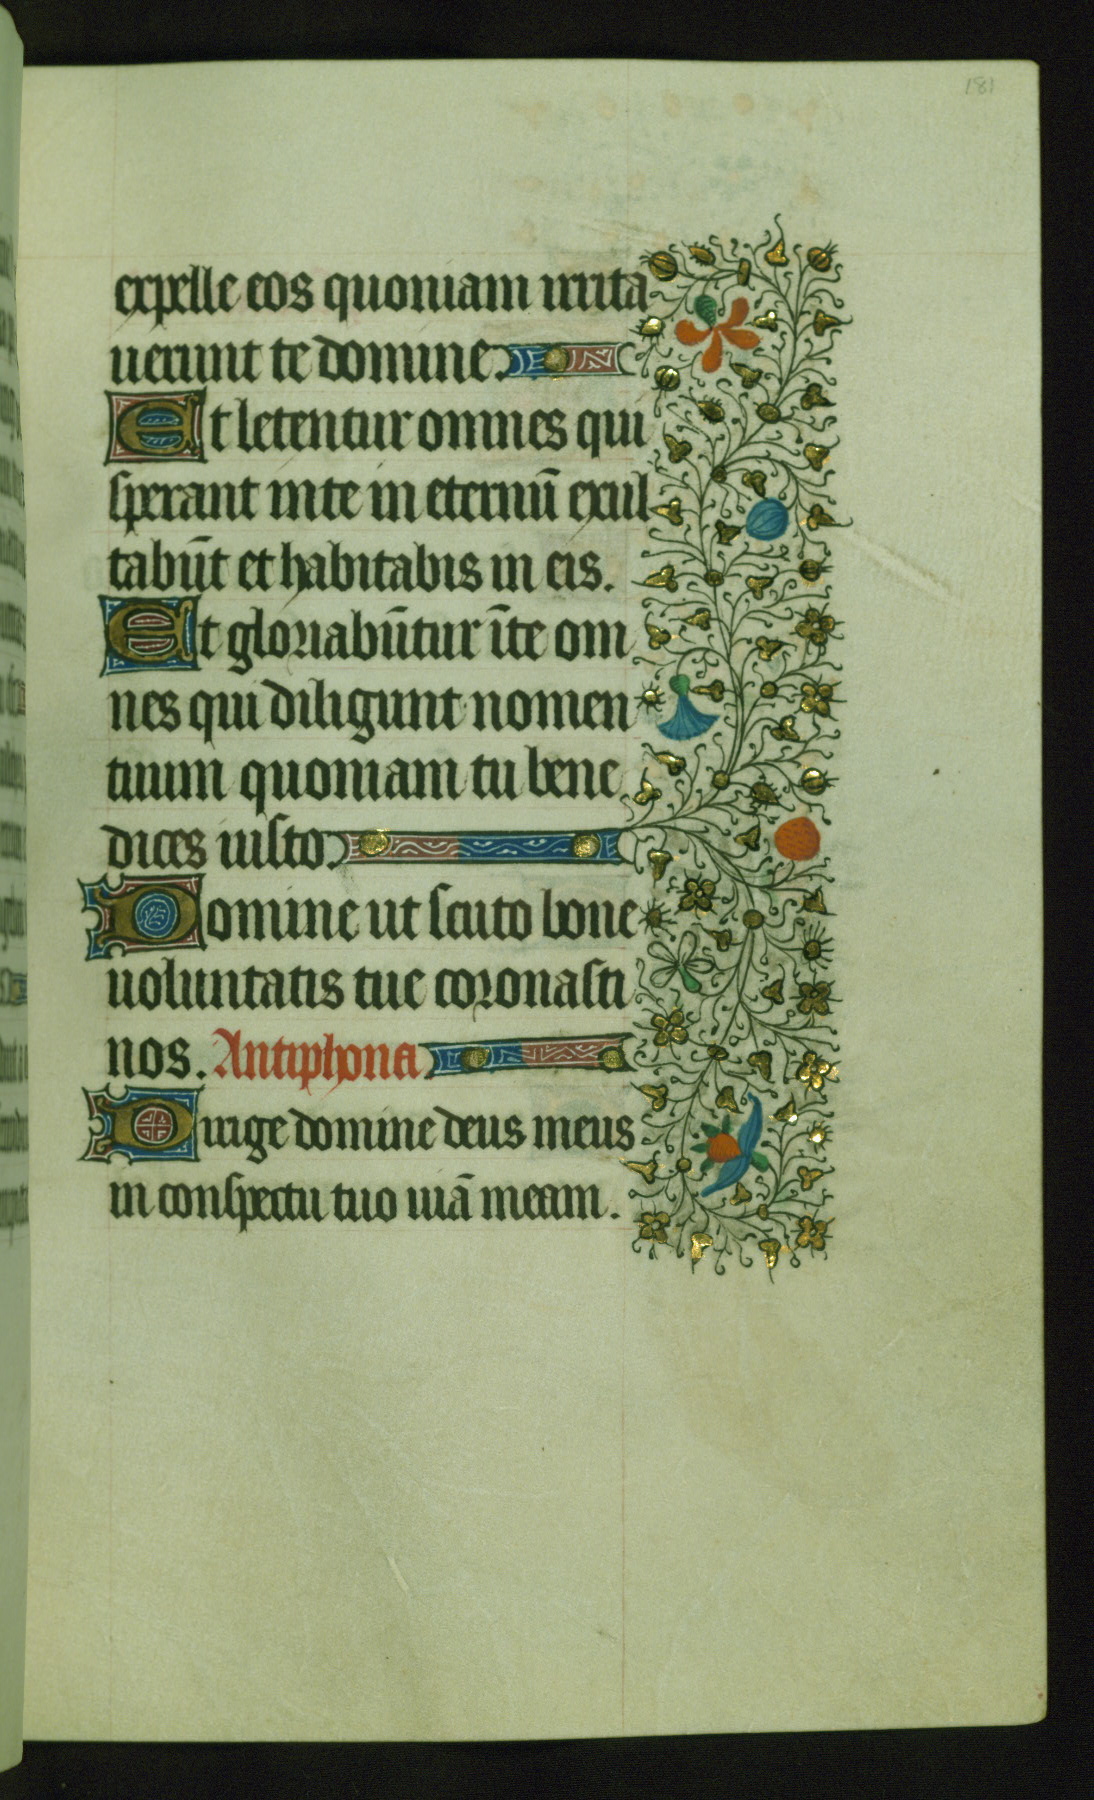 181
expelle eos quoniam irrita
uerunt te domine
Et letentur omnes qui
sperant in te in eternū exul
tabūt et habitabis in eis.
Et gloriabūtur īte om
nes qui diligunt nomen
tuum quoniam tu bene
dices iusto
Domine ut scuto bone
uoluntatis tue coronasti
nos. Antiphona
Dirige domine deus meus
in conspectu tuo uiā meam.